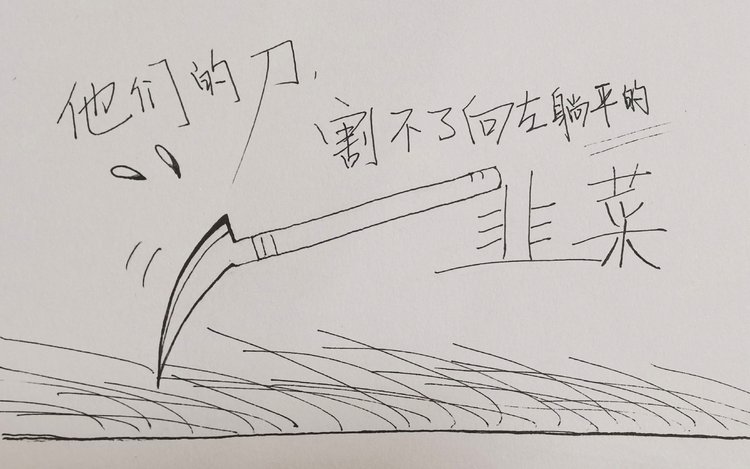 他们的刀，
割不了向左躺平的
韭菜